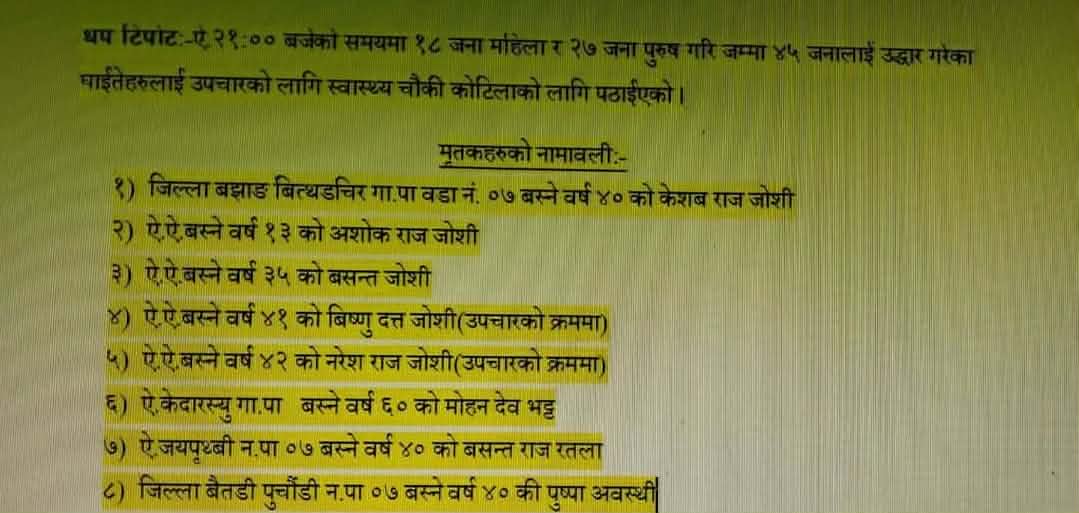 थप टिपोट:-ऐ.२१:०० बजेको समयमा १८ जना महिला र २७ जना पुरुष गरि जम्मा ४५ जनालाई उद्धार गरेका
घाईतेहरुलाई उपचारको लागि स्वास्थ्य चौकी कोटिलाको लागि पठाईएको।
मृतकहरुको नामावली:-
१) जिल्ला बझाङ बित्थडचिर गा.पा वडा नं. ०७ बस्ने वर्ष ४० को केशब राज जोशी
२) ऐ.ऐ.बस्ने वर्ष १३ को अशोक राज जोशी
३) ऐ.ऐ.बस्ने वर्ष ३५ को बसन्त जोशी
४) ऐ.ऐ.बस्ने वर्ष ४१ को बिष्णु दत्त जोशी(उपचारको क्रममा)
५) ऐ.ऐ.बस्ने वर्ष ४२ को नरेश राज जोशी(उपचारको क्रममा)
६) ऐ.केदारस्यु गा.पा बस्ने वर्ष ६० को मोहन देव भट्ट
७) ऐ.जयपृथ्बी न.पा ०७ बस्ने वर्ष ४० को बसन्त राज रतला
८) जिल्ला बैतडी पुर्चौंडी न.पा ०७ बस्ने वर्ष ४० की पुष्पा अवस्थी